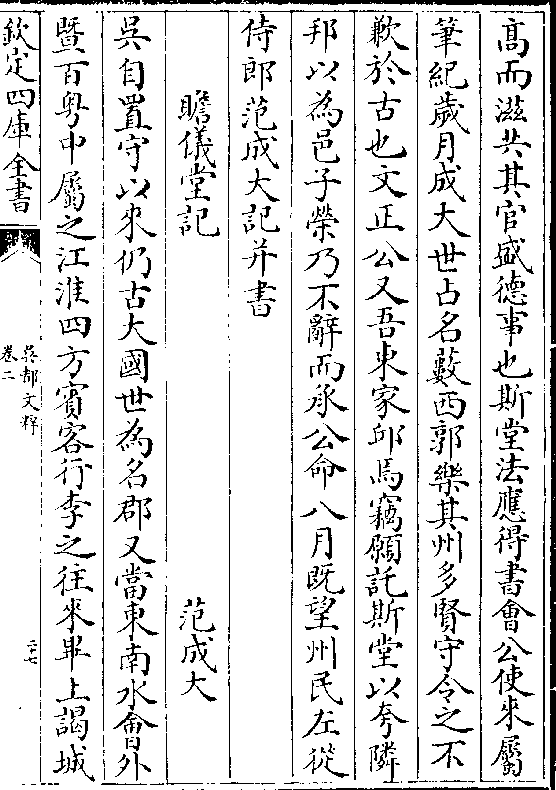 髙而滋共其官盛德事也斯堂法應得書會公使來屬
筆紀歲月成大世占名數西郭樂其州多賢守令之不
歉於古也文正公又吾東家邱焉竊願託斯堂以夸隣
邦以為邑子榮乃不辭而承公命八月既望州民左從
侍郎范成大記并書
瞻儀堂記 范成大
吳自置守以來仍古大國世為名郡又當東南水會外
暨百粤中屬之江淮四方賓客行李之往來畢上謁城
欽定四庫全書
吳都文粹
卷二
二十七